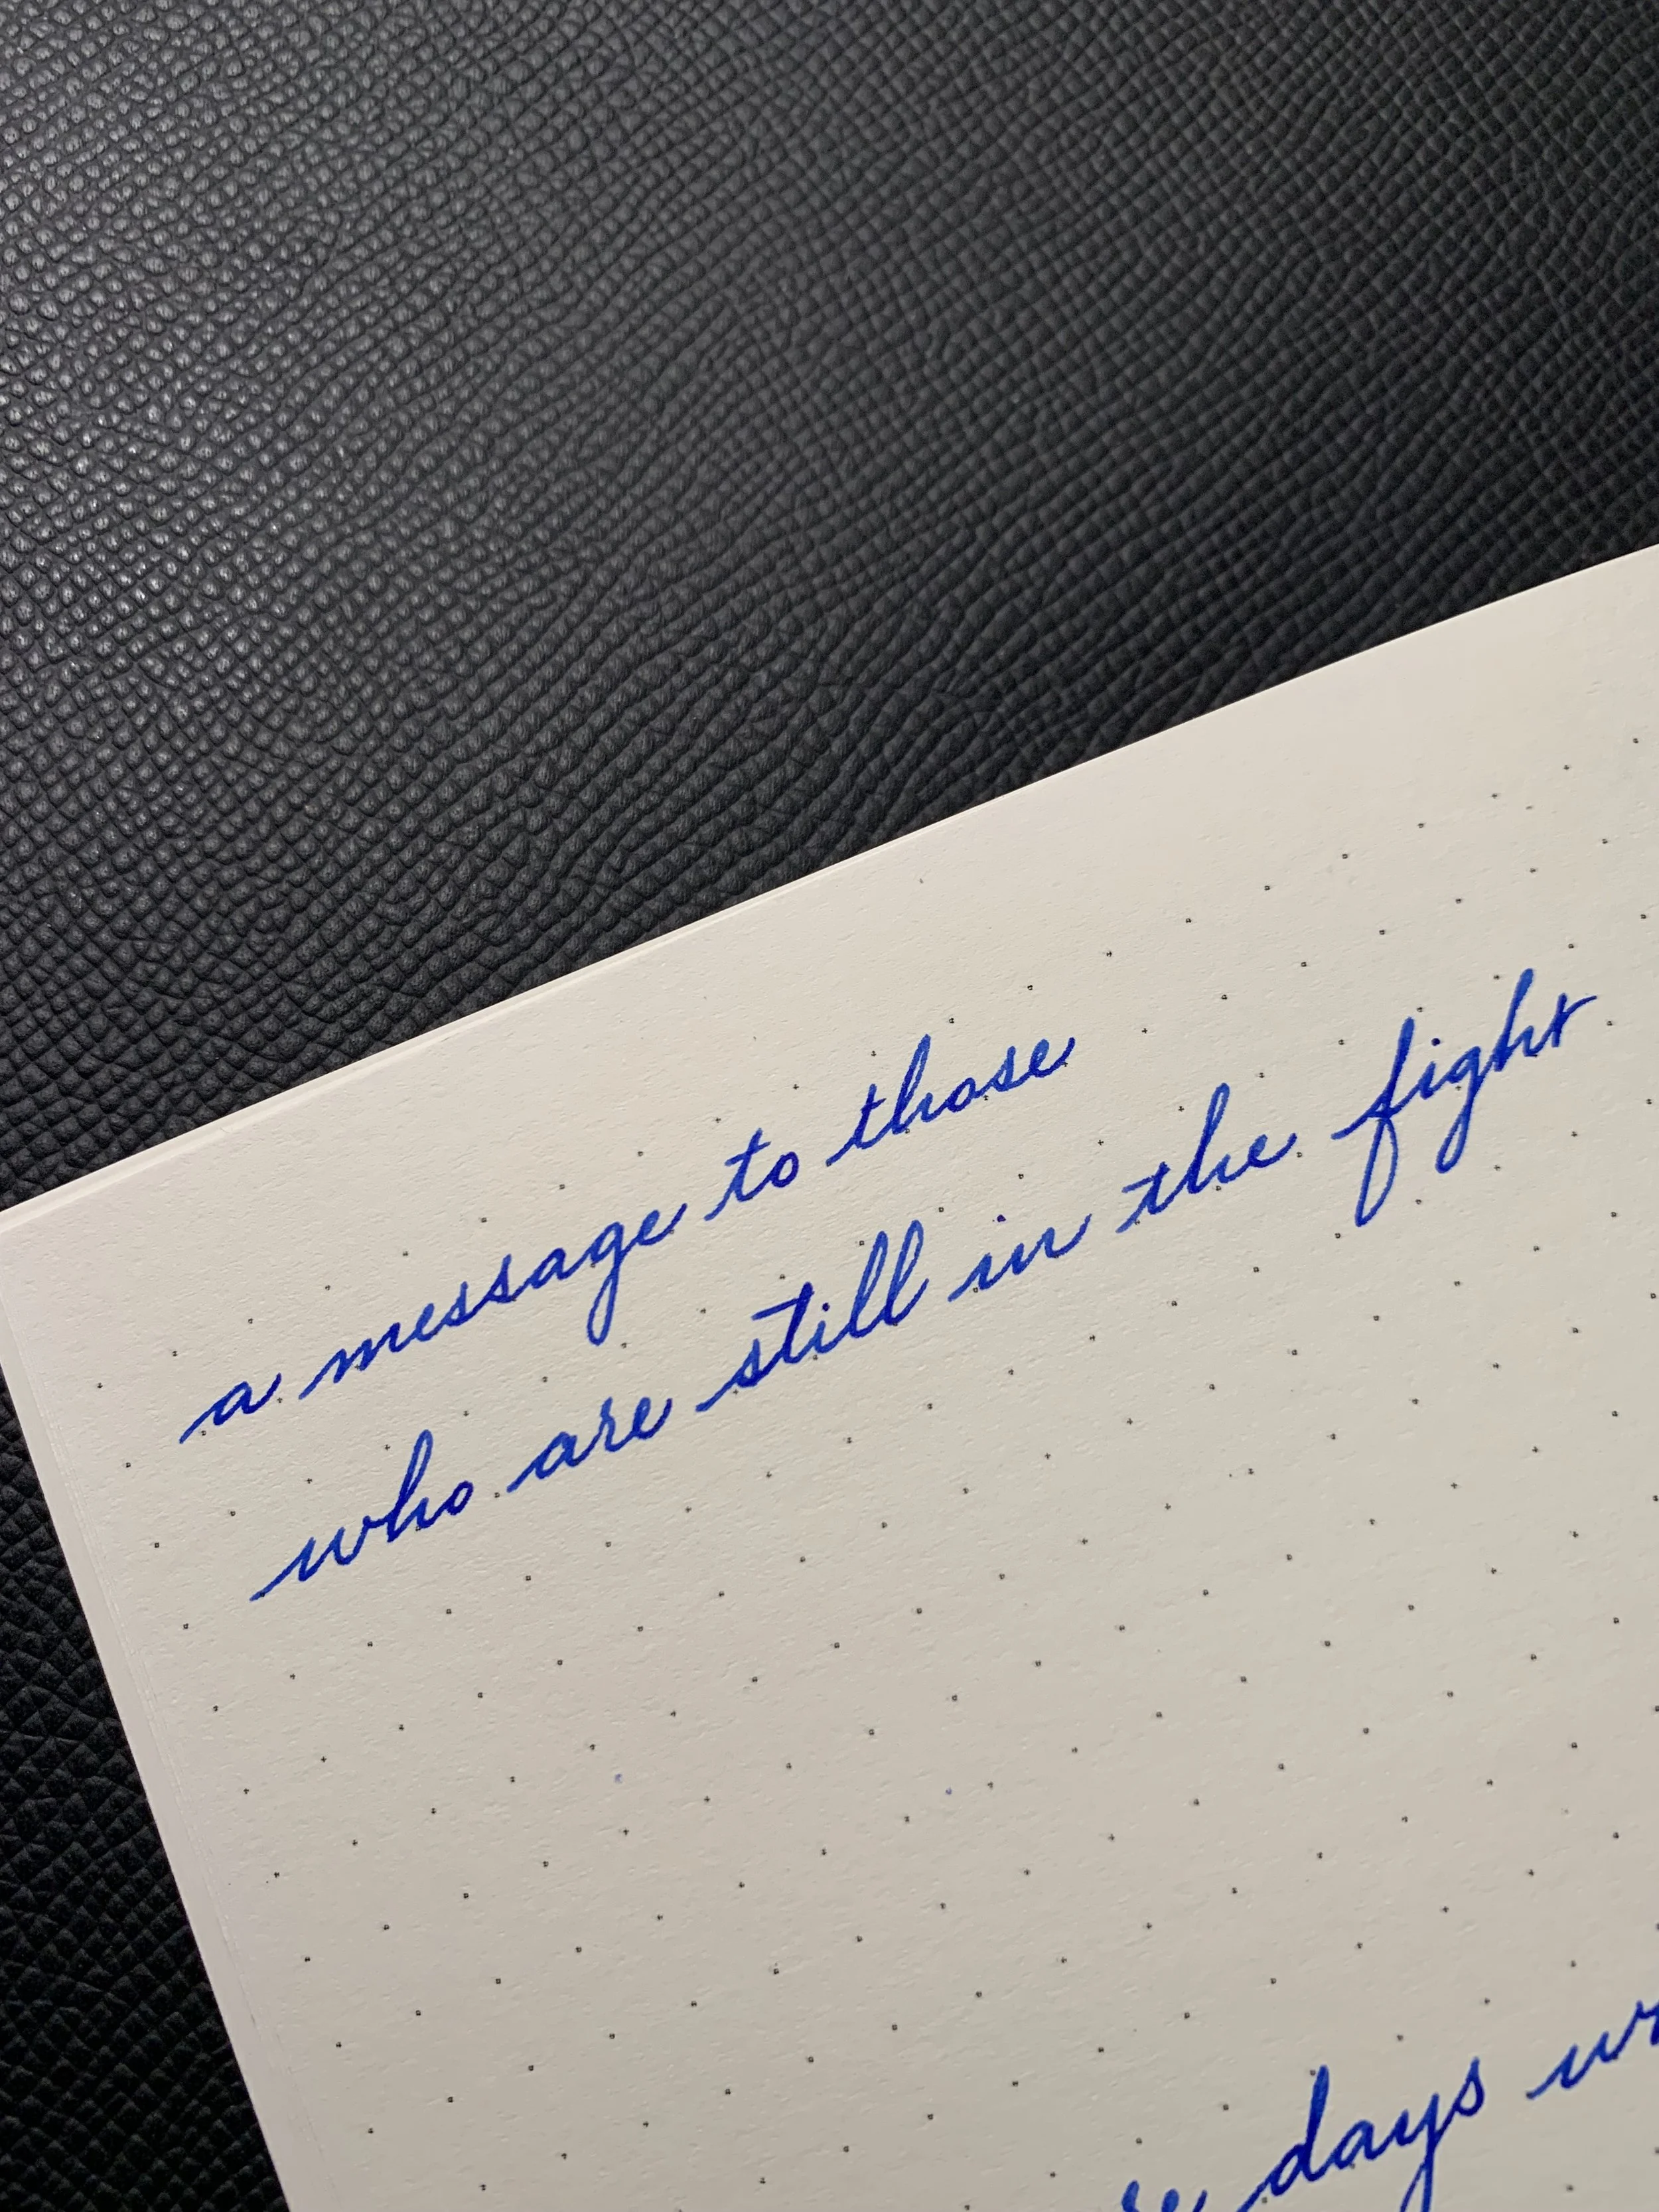 a message to those
who are still in the fight
days